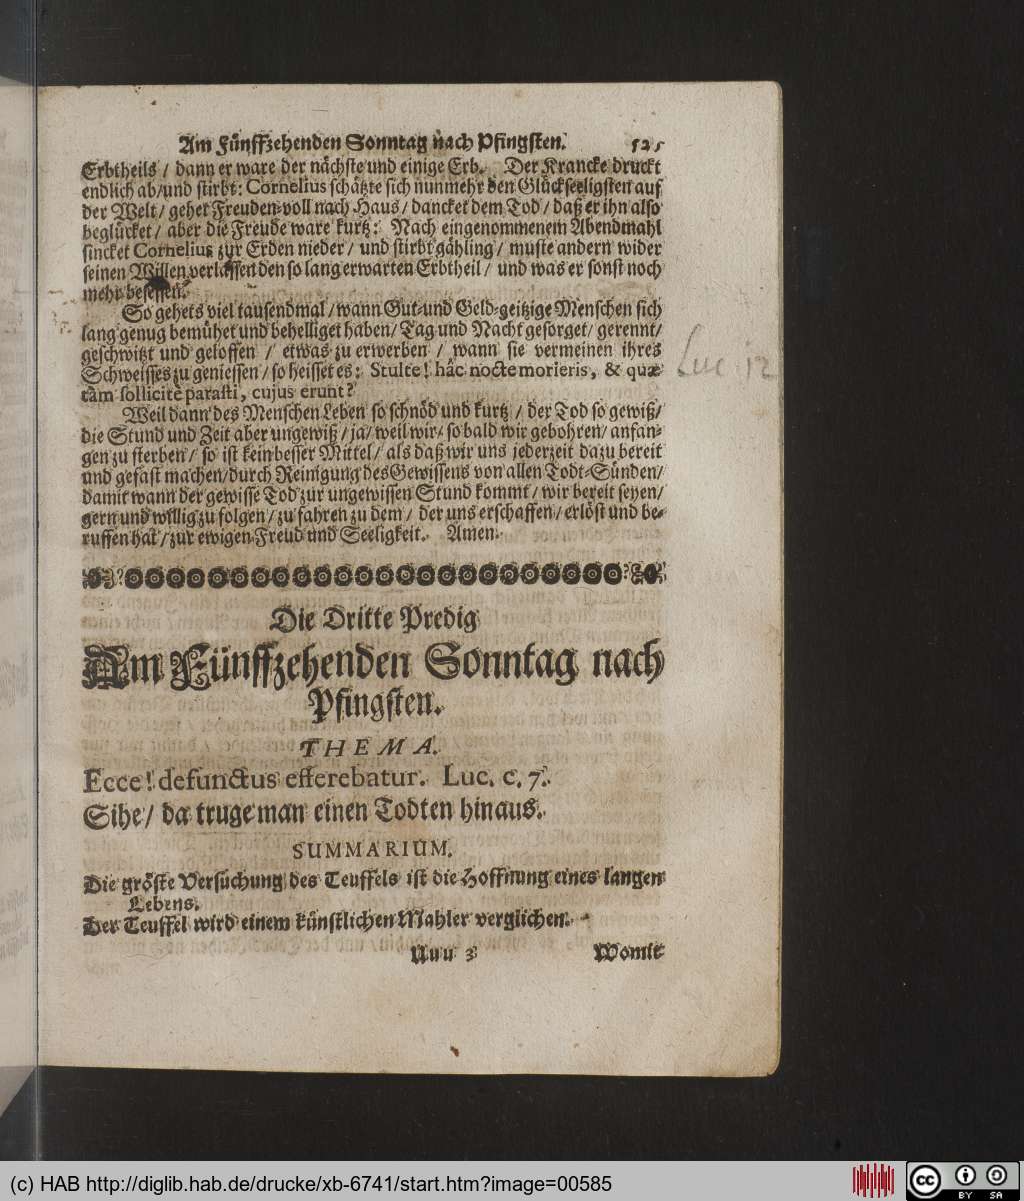 Am Fünffzehenden Sonntag nach Pfingsten. 525
Erbtheils / dann er ware der nächste und einige Erb. Der Krancke druckt
endlich ab/und stirbt: Cornelius schätzte sich nunmehr den Glückseeligsten auf
der Welt / gehet Freuden-voll nach Haus / dancket dem Tod / daß er ihn also
beglücket / aber die Freude ware kurtz: Nach eingenommenem Abendmahl
sincket Cornelius zur Erden nieder / und stirbt gähling / muste andern wider
seinen Willen verlassen den so lang erwarten Erbtheil / und was er sonst noch
mehr besessen.
So gehets viel tausendmal / wann Gut-und Geld-geitzige Menschen sich
lang genug bemühet und behelliget haben / Tag und Nacht gesorget / gerennt/
geschwitzt und geloffen / etwas zu erwerben / wann sie vermeinen ihres
Schweisses zu geniessen / so heisset es: Stulte! hâc nocte morieris, & quæ
tàm sollicitè parasti, cujus erunt?
Luc. 12
Weil dann des Menschen Leben so schnöd und kurtz / der Tod so gewiß/
die Stund und Zeit aber ungewiß / ja / weil wir / so bald wir gebohren / anfan-
gen zu sterben / so ist kein besser Mittel / als daß wir uns jederzeit dazu bereit
und gefast machen/durch Reinigung des Gewissens von allen Todt-Sünden/
damit wann der gewisse Tod zur ungewissen Stund kommt / wir bereit seyen/
gern und willig zu folgen / zu fahren zu dem / der uns erschaffen / erlöst und be-
ruffen hat / zur ewigen Freud und Seeligkeit. Amen.
Die Dritte Predig
Am Fünffzehenden Sonntag nach
Pfingsten.
THEMA.
Ecce! defunctus efferebatur. Luc. c. 7.
Sihe / da truge man einen Todten hinaus.
SUMMARIUM.
Die gröste Versuchung des Teuffels ist die Hoffnung eines langen
Lebens.
Der Teuffel wird einem künstlichen Mahler verglichen.
Uuu 3 Womit
(c) HAB http://diglib.hab.de/drucke/xb-6741/start.htm?image=00585
cc BY SA